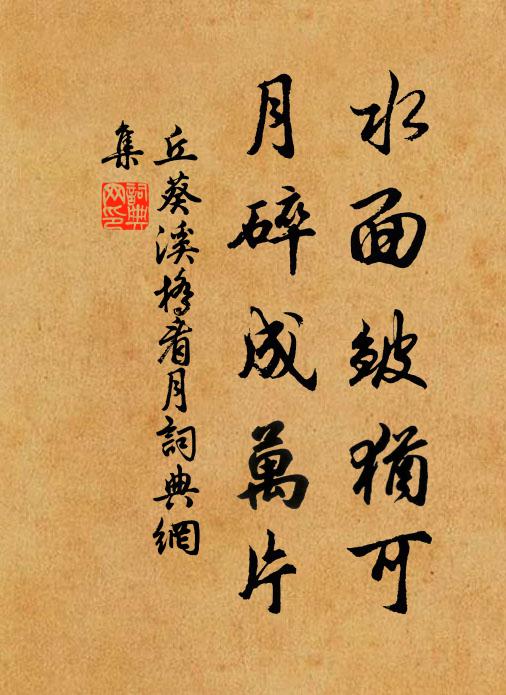 水面皴猶可
月碎成萬片
丘葵溪橋看月詞典網
集
詞典網印